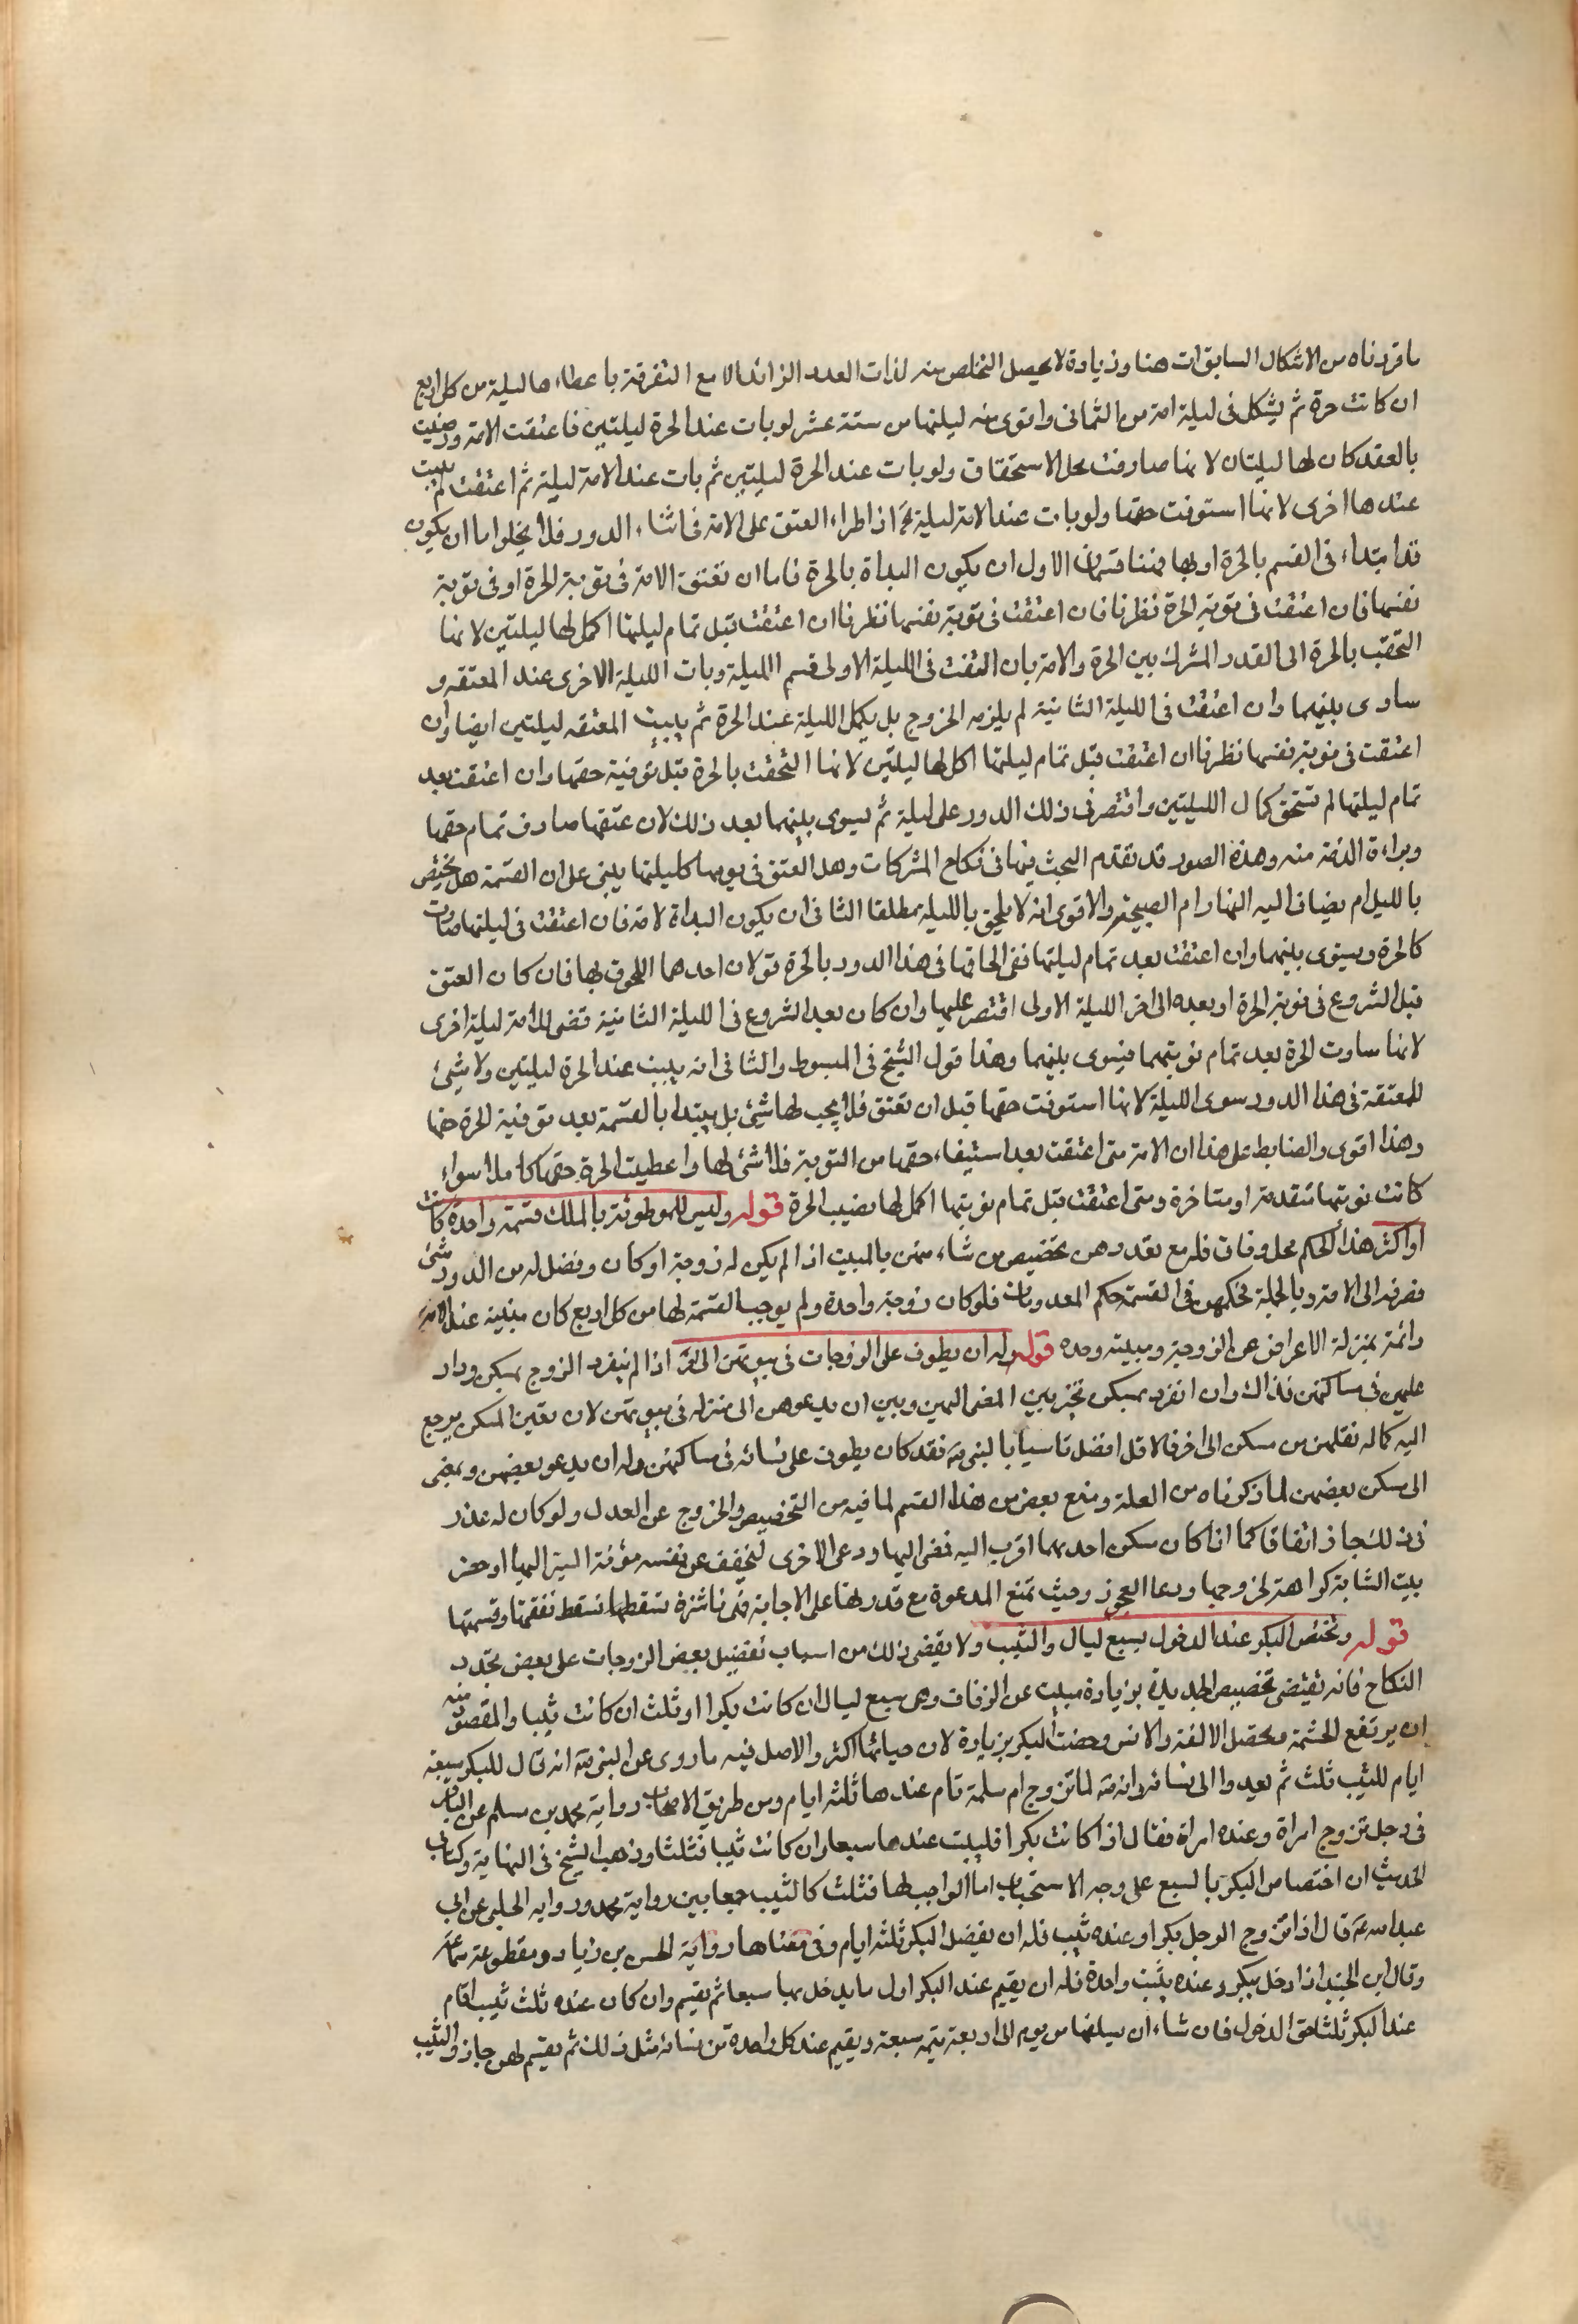 ما قررناه من الاشكال السابق ات هنا وزيادة لا يحصل التخلص منه لذات العدد الزائد الا مع التفرقة باعطاءها ليلة من كل اربع
ان كانت حرة ثم يشكل في ليلة امة من الثماني واقوى منه ليلتها من ستة عشر لو بات عند الحرة ليلتين فاعتقت الامة ورضيت
بالعقد كان لها ليلتان لانها صادفت محل الاستحقاق ولو بات عند الحرة ليلتين ثم بات عند الامة ليلة ثم اعتقت لم يبت
عندها اخرى لانها استوفت حقها ولو بات عند الامة ليلة اذا طراء العتق على الامة في اثناء الدور فلا يخلوا اما ان يكون
قد ابتداء في القسم بالحرة او بها فهنا قسمان الاول ان يكون البداة بالحرة فاما ان تعتق الامة في نوبة الحرة او في نوبة
نفسها فان اعتقت في نوبة الحرة نظرنا فان اعتقت في نوبة نفسها نظرنا ان اعتقت قبل تمام ليلتها اكمل لها ليلتين لانها
التحقت بالحرة الى القدر المشترك بين الحرة والامة بان اعتقت في الليلة الاولى قسم الليلة وبات الليلة الاخرى عند المعتقه و
ساوى بينهما وان اعتقت في الليلة الثانية لم يلزمه الخروج بل يكمل الليلة عند الحرة ثم يبيت المعتقه ليلتين ايضا وان
اعتقت في نوبة نفسها نظرنا ان اعتقت قبل تمام ليلتها اكمل لها ليلتين لانها التحقت بالحرة قبل توفية حقها وان اعتقت بعد
تمام ليلتها لم تستحق كمال الليلتين واقتصر في ذلك الدور على ليلة ثم يسوى بينهما بعد ذلك لان عتقها صادف تمام حقها
وبراءة الذمة منه وهذه الصور قد تقدم البحث فيها في نكاح المشركات وهل العتق في يومها كليلتها يبنى على ان القسمة هل يختص
بالليل ام يضاف اليه النهار ام الصبيحة والاقوى انه لا يلحق بالليلة مطلقا الثاني ان يكون البداة لامة فان اعتقت في ليلتها صارت
كالحرة ويسوى بينهما وان اعتقت بعد تمام ليلتها ففي الحاقها في هذا الدور بالحرة قولان احدهما اللحوق بها فان كان العتق
قبل الشروع في نوبة الحرة او بعده الى اخر الليلة الاولى اقتصر عليها وان كان بعد الشروع في الليلة الثانية قضى للامة ليلة اخرى
لانها ساوت الحرة بعد تمام نوبتهما فيسوى بينهما وهذا قول الشيخ في المبسوط والثاني انه يبيت عند الحرة ليلتين ولا شئ
للمعتقة في هذا الدور سوى الليلة لانها استوفت حقها قبل ان تعتق فلا يجب لها شئ بل يبتدا بالقسمة بعد توفية الحرة حقها
وهذا اقوى والضابط على هذا ان الامة متى اعتقت بعد استيفاء حقها من النوبة فلا شئ لها واعطيت الحرة حقها كاملا سواء
كانت نوبتها متقدمة او متاخرة ومتى اعتقت قبل تمام نوبتها اكمل لها نصيب الحرة قوله وليس للموطوئة بالملك قسمة واحدة كانت
او اكثر هذا الحكم محل وفاق فله مع تعددهن تخصيص من شاء منهن بالمبيت اذا لم يكن له زوجة او كان وفضل له من الدور شئ
فصرفه الى الامة وبالجملة فحكمهن في القسمة حكم المعدومات فلو كان زوجة واحدة ولم يوجب القسمة لها من كل اربع كان مبيته عند الامة
دائمة بمنزلة الاعراض عن الزوجة ومبيته وحده قوله وله ان يطوف على الزوجات في بيوتهن الى اخره اذا لم ينفرد الزوج بمسكن ودار
عليهن في مساكنهن فذاك وان انفرد بمسكن تخير بين المضى اليهن وبين ان يدعوهن الى منزله في بيوتهن لان تعيين المسكن يرجع
اليه كما له نقلهن من مسكن الى اخر فالاول افضل تاسيا بالنبي ص فقد كان يطوف على نسائه في مساكنهن وله ان يدعو بعضهن ويمضى
الى مسكن بعضهن لما ذكرناه من العلة ومنع بعض من هذا القسم لما فيه من التخصيص والخروج عن العدل ولو كان له عذر
في ذلك جاز اتفاقا كما اذا كان سكن احديهما اقرب اليه فمضى اليها ودعى الاخرى ليخفف عن نفسه مؤنة السير اليها او حضر
بيت الشابة كراهة لخروجها ودعا العجوز وحيث تمنع المدعوة مع قدرتها على الاجابة فهي ناشزة تسقطها نسقط نفقتها وقسمتها
قوله وتختص البكر عند الدخول بسبع ليال والثيب ولا يقضى ذلك من اسباب تفضيل بعض الزوجات على بعض تجدد
النكاح فانه تقتضى تخصيص الجديدة بزيادة مبيت عن الزفاف وهي سبع ليال ان كانت بكرا او ثلث ان كانت ثيبا والمقصود منه
ان يرتفع الحشمة وتحصل الالفة والانس وخصت البكر بزيادة لان حيائها اكثر والاصل فيه ما روى عن النبي ص انه قال للبكر سبعة
ايام للثيب ثلث ثم يعيد والى نسائه وانه ص لما تزوج ام سلمة قام عندها ثلثه ايام ومن طريق الاصحاب رواية محمد بن مسلم عن الباقر
في رجل تزوج امراة وعنده امراة فقال اذا كانت بكرا فليبت عندها سبعا وان كانت ثيبا فثلثا وذهب الشيخ في النهاية وكتابى
الحديث ان اختصاص البكر بالسبع على وجه الاستحباب اما الواجب لها فثلث كالثيب جمعا بين رواية محمد ورواية الحلبي عن ابي
عبد الله ع قال اذا تزوج الرجل بكرا وعنده ثيب فله ان يفضل البكر ثلثه ايام وفي معناها رواية الحسن بن زياد ومقطوعة سماعة
وقال ابن الجنيد اذا دخل ببكر وعنده ثيب واحدة فله ان يقيم عند البكر اول ما يدخل بها سبعا ثم يقيم وان كان عنده ثلث ثيب اقام
عند البكر ثلثا حق الدخول فان شاء ان يسلفها من يوم الى اربعة يتمه سبعة ويقيم عند كل واحدة من نسائه مثل ذلك ثم يقسم لهن جاز والثيب